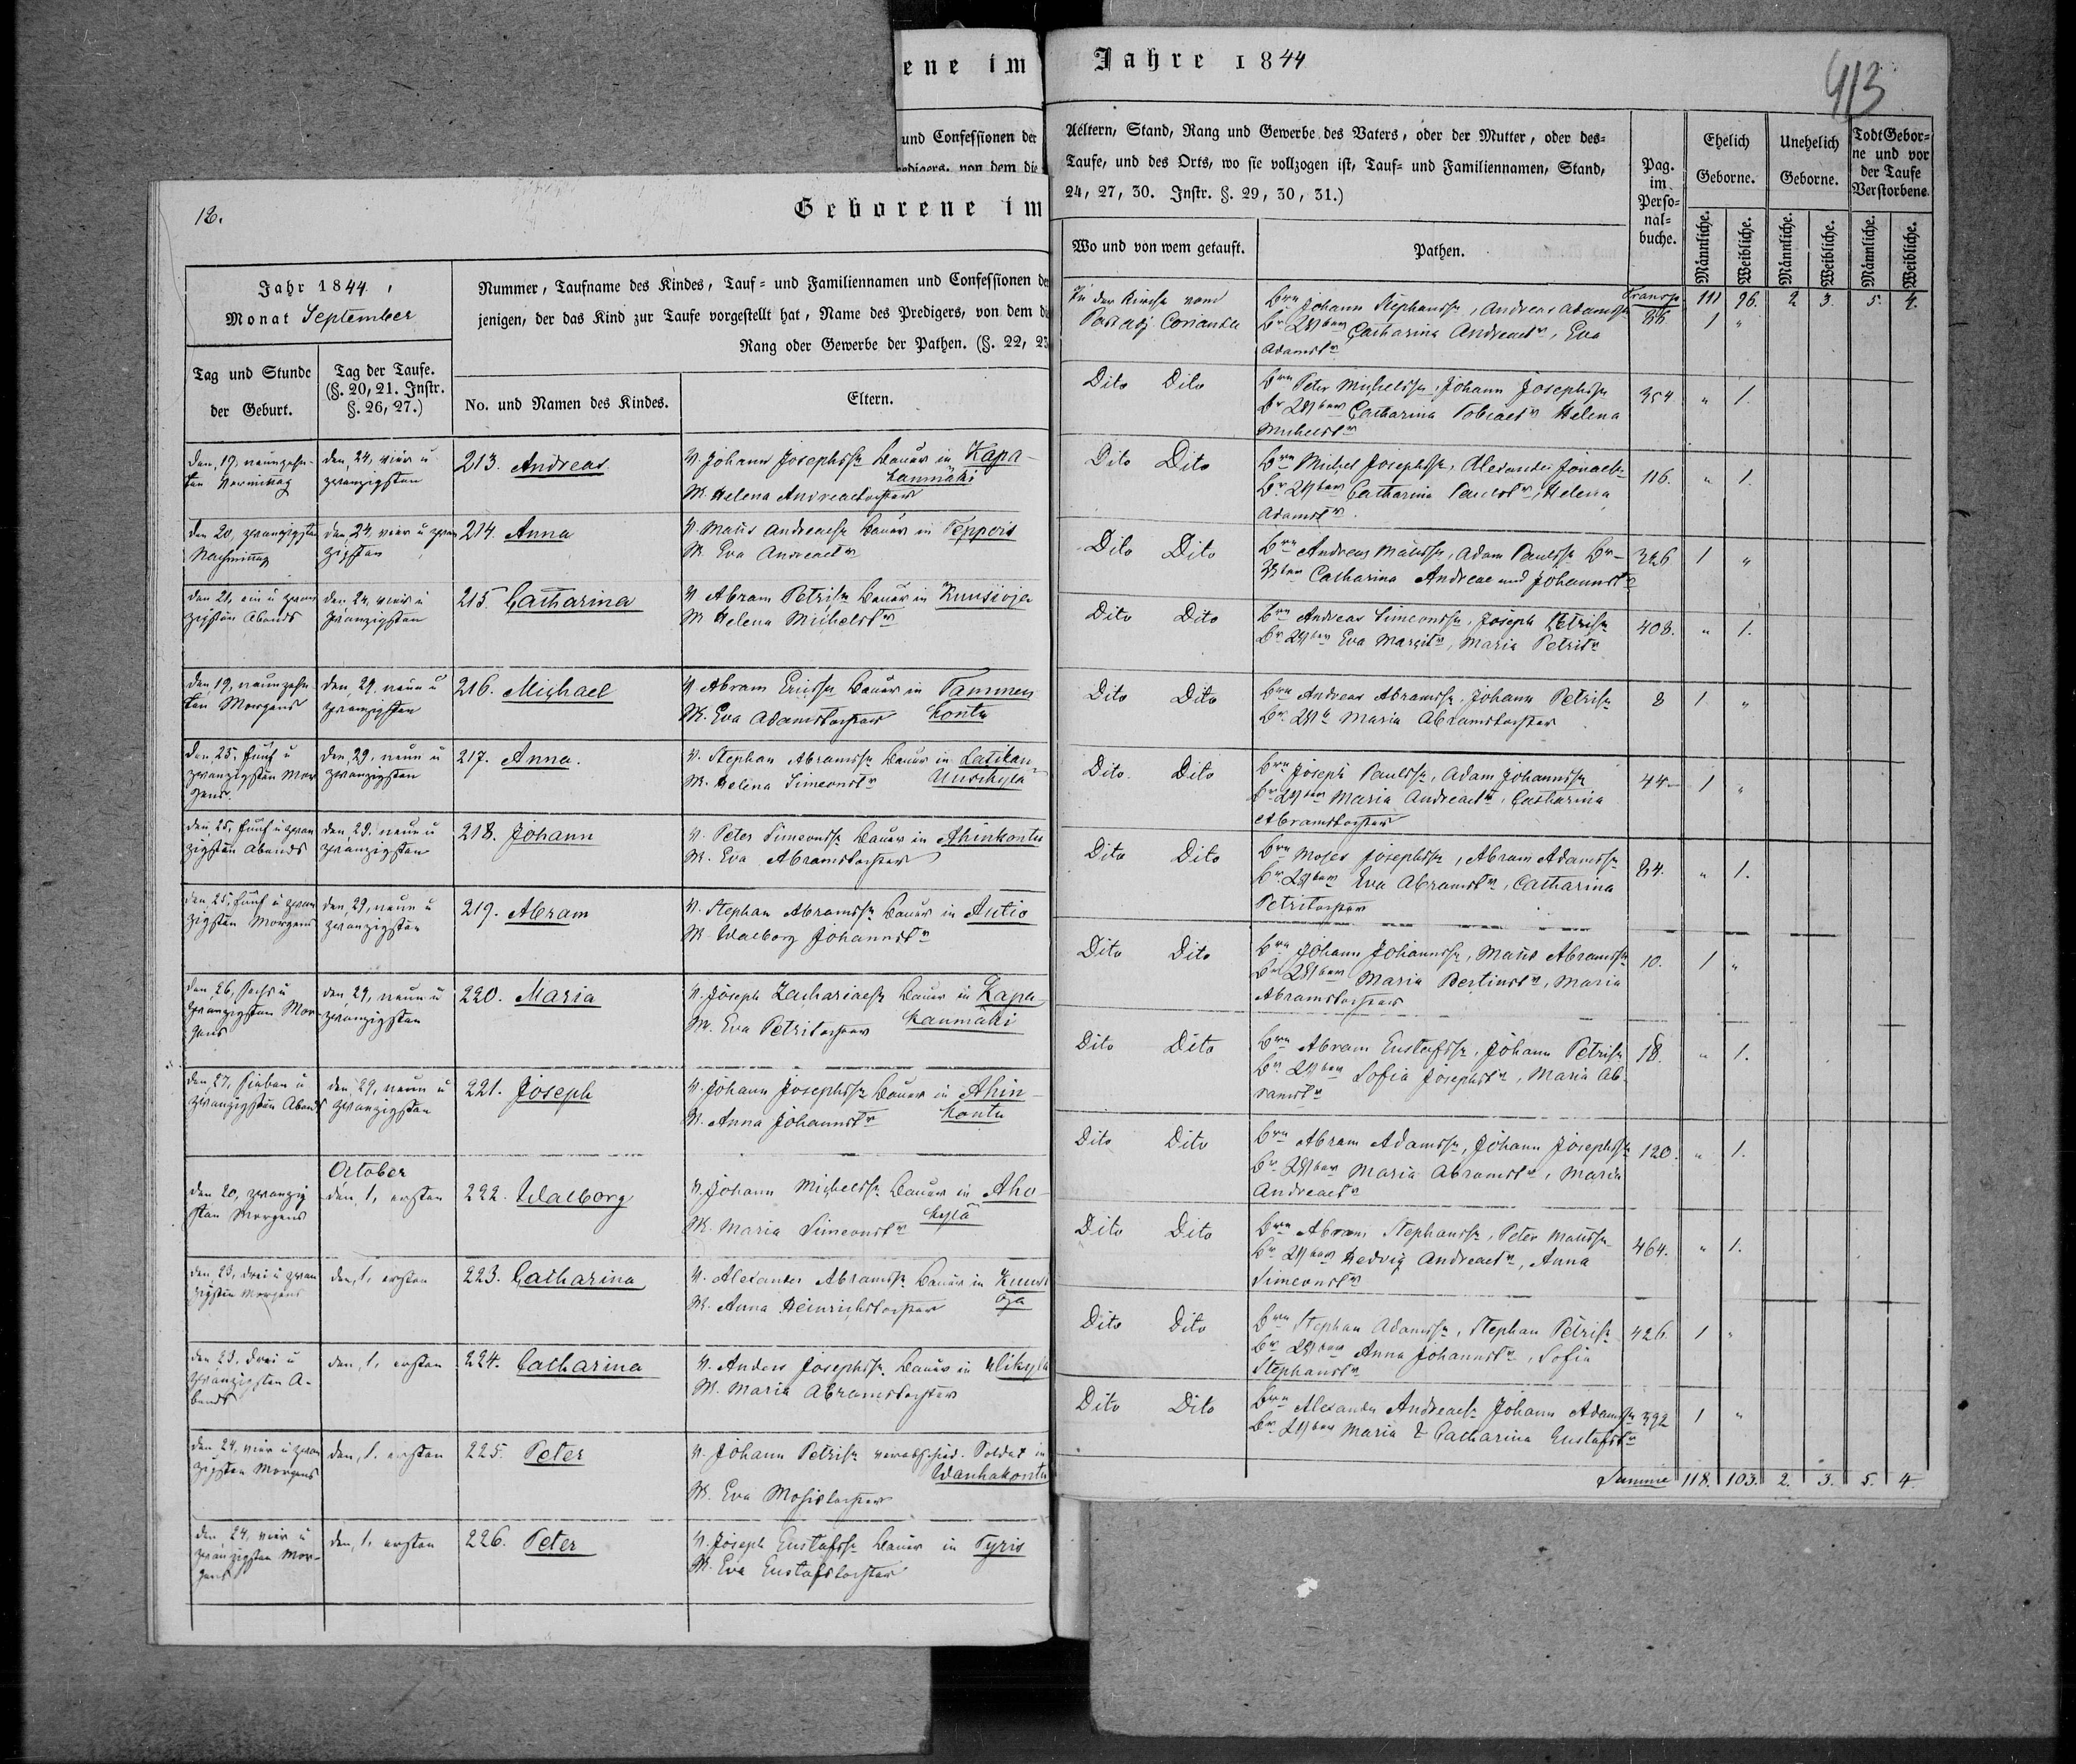 ene im
und Confessionen der
edigers, von dem die
12.
Geborene im
Jahr 1844.
Monat September
Nummer, Taufname des Kindes, Tauf= und Familiennamen und Confessionen de
jenigen, der das Kind zur Taufe vorgestellt hat, Name des Predigers, von dem d
Rang oder Gewerbe der Pathen. (§. 22, 23
Tag und Stunde
der Geburt.
Tag der Taufe.
(§. 20, 21. Instr.
§. 26, 27.)
No. und Namen des Kindes.
Eltern.
den, 19, neunzehn-
ten Vormittag
den, 24, vier u
zwanzigsten
213. Andreas.
V. Johann Josephss. Bauer in Kapa-
kanmäki
M. Helena Andreaetochter
den 20, zwanzigsten
Nachmittag
den, 24, vier u zwan
zigsten
214. Anna
V. Matts Andreaess. Bauer in Teppois
M. Eva Andreaetr
den 21, ein u zwan
zigsten Abends
den 24, vier u
zwanzigsten
215. Catharina
V Abram Petriss. Bauer in Kuusioja
M Helena Michelstr
den, 19, neunzehn
ten Morgens
den, 29. neun u
zwanzigsten
216. Michael
V Abram Ericss. Bauer in Tammen
kontu
M. Eva Adamstochter
den, 25, fünf u
zwanzigsten Mor
gens.
den, 29, neun u
zwanzigsten
217. Anna.
V. Stephan Abramss. Bauer in Latikan-
Uusikylä
M. Helena Simeonstr
den, 25, fünf u zwan
zigsten Abends
den, 29. neun u
zwanzigsten
218. Johann
V. Peter Simeonss. Bauer in Ahinkontu
M. Eva Abramstochter
den, 25, fünf u zwan
zigsten Morgens
den, 29, neun u
zwanzigsten
219. Abram
V. Stephan Abramss. Bauer in Autio
M. Walborg Johannstr
den, 26, sechs u
zwanzigsten Mor
gens
den 29, neun u
zwanzigsten
220. Maria
V. Joseph Zachariaess. Bauer in Kapa-
kanmäki
M. Eva Petritochter
den, 27, sieben u
zwanzigsten Abends
den, 29, neun u
zwanzigsten
221. Joseph
V. Johann Josephss. Bauer in Ahin-
kontu
M. Anna Johannstr
October
den 20, zwanzig
sten Morgens
den, 1, ersten
222. Walborg
V. Johann Michelss. Bauer in Aho-
kylä
M. Maria Simeonstr
den, 23, drei u zwan
zigsten Morgens
den, 1, ersten
223. Catharina
V. Alexander Abramss. Bauer in Kuusi
oja
M. Anna Heinrichstochter
den 23, drei u
zwanzigsten A-
bends
den, 1, ersten
224. Catharina
V. Anders Josephss. Bauer in Ylikylä
M. Maria Abramstochter
den 24, vier u zwan
zigsten Morgens
den, 1. ersten
225. Peter
V. Johann Petriss. verabschied. Soldat in
Wanhakontu
M. Eva Mosistochter
den, 24, vier u
zwanzigsten Mor-
gens
den, 1, ersten
226. Peter
V. Joseph Gustafss. Bauer in Pyris
M. Eva Gustafstochter
Jahre 1844
413
Aeltern, Stand, Rang und Gewerbe des Vaters, oder der Mutter, oder des=
Taufe, und des Orts, wo sie vollzogen ist, Tauf= und Familiennamen, Stand,
24, 27, 30. Instr. §. 29, 30, 31.)
Pag.
im
Perso=
nal=
buche.
Ehelich
Geborne.
Unehelich
Geborne.
TodtGebor=
ne und vor
der Taufe
Verstorbene.
Wo und von wem getauft.
Pathen.
Männliche.
Weibliche.
Männliche.
Weibliche.
Männliche.
Weibliche.
Transp. 111 96. 2. 3. 5. 4.
In der Kirche vom
Past adj Coriander
Brn Johann Stephanss., Andreas Adamss.
Br Wber Catharina Andreaetr, Eva
Adamstr
1 "
Dito Dito
Brn Peter Michelss., Johann Josephss.
Br Wber Catharina Tobiaetr Helena
Michelstr
354 " 1.
Dito Dito
Brn Michel Josephss., Alexander Jonaess.
Br. Wber Catharina Paulstr, Helena
Adamstr.
116. " 1.
Dito Dito
Brn Andreas Mattss., Adam Paulss. Br-
Wber Catharina Andreae und Johannstr
326 1 "
Dito Dito
Brn Andreas Simeonss., Joseph Petriss.
Br Wber Eva Marcitr, Maria Petritr
408. " 1.
Dito Dito
Brn Andreas Abramss. Johann Petriss.
Br. Wb Maria Abramstochter
8 1 "
Dito. Dito
Brn Joseph Paulss., Adam Johannss.
Br Wber Maria Andreaetr, Catharina
Abramstochter
44 1 "
Dito Dito
Brn Moses Josephss., Abram Adamss.
Br. Wber Eva Abramstr, Catharina
Petritochter
84. " 1.
Dito Dito
Brn Johann Johannss., Matts Abramss.
Br Wber Maria Bertilstr, Maria
Abramstochter
10. 1 "
Dito Dito
Brn Abram Gustafss., Johann Petriss.
Br. Wber Sofia Josephstr, Maria Ab-
ramstr
18. " 1.
Dito Dito
Brn Abram Adamss., Johann Josephss.
Br Wber Maria Abramstr, Maria
Andreaetr
120. " 1.
Dito Dito
Brn Abram Stephanss., Peter Mattss.
Br Wber Hedvig Andreaetr, Anna
Simeonstr
464. " 1.
Dito Dito
Brn Stephan Adamss., Stephan Petriss.
Br Wber Anna Johannstr, Sofia
Stephanstr
426. 1 "
Dito Dito
Brn Alexander Andreaess. Johann Adamss.
Br Wber Maria & Catharina Gustafstr
392 1 "
Summa 118. 103. 2. 3. 5. 4.